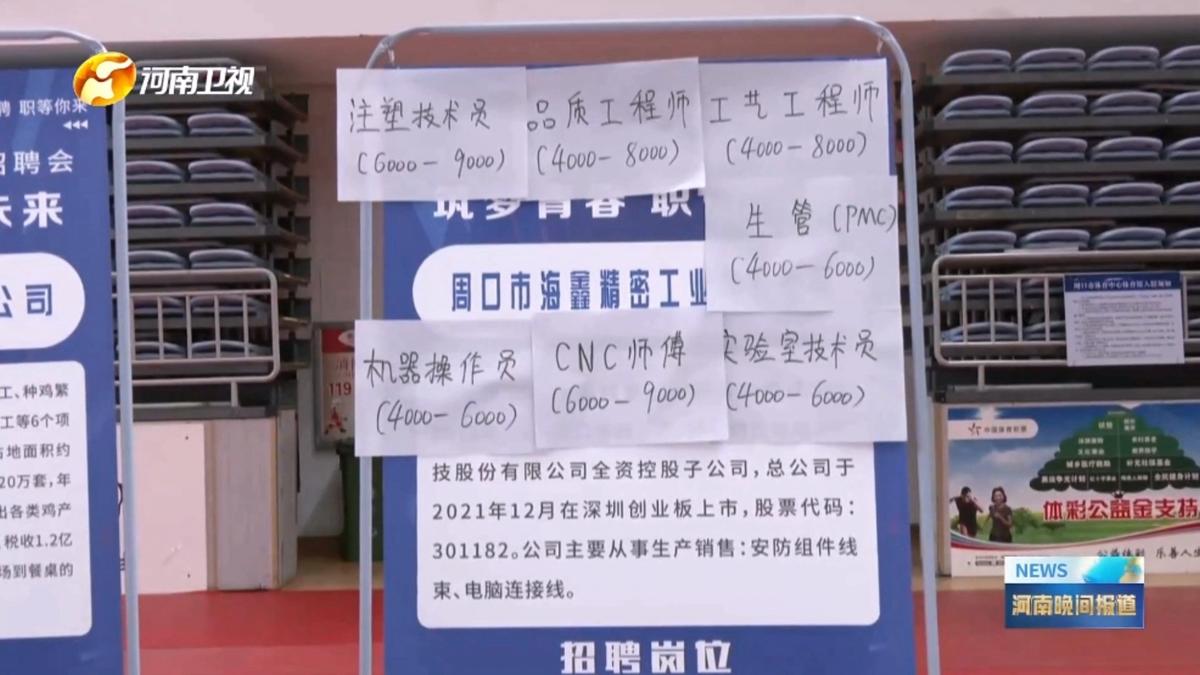 河南卫视
聘 职等你来
招聘会
未来
公司
工、种鸡繁
工等6个项
占地面积约
20万套，年
出各类鸡产
税收1.2亿
场到餐桌的
注塑技术员
(6000-9000)
品质工程师
(4000-8000)
工艺工程师
(4000-8000)
筑梦青春 职
生管(PMC)
(4000-6000)
周口市海鑫精密工业
机器操作员
(4000-6000)
CNC师傅
(6000-9000)
实验室技术员
(4000-6000)
技股份有限公司全资控股子公司，总公司于
2021年12月在深圳创业板上市，股票代码：
301182。公司主要从事生产销售：安防组件线
束、电脑连接线。
招聘岗位
119
中国体育彩票
体彩公益金支持
公益体彩 乐善人生
NEWS
河南晚间报道